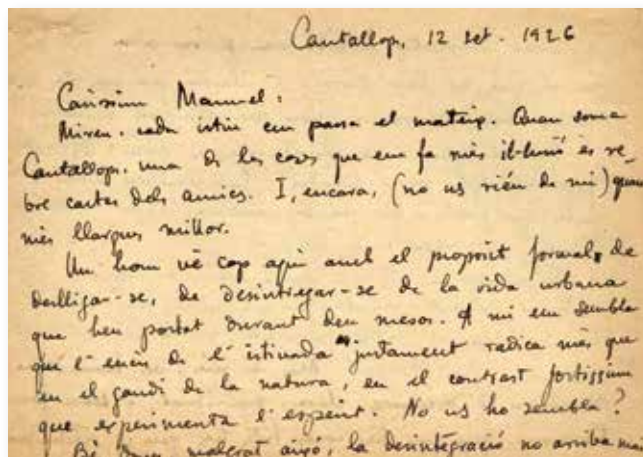 Cantallops, 12 set. 1926
Caríssim Manuel:
Mireu. cada istiu em passa el mateix. Quan som a
Cantallops, una de les coses que em fa més il·lusió és re-
bre cartes dels amics. I, encara, (no us rieu de mi) quan
més llargues millor.
Un hom vé cap aquí amb el proposit formal, de
deslligar-se, de desintregar-se de la vida urbana
que heu portat durant deu mesos. A mi em sembla
que l'encís de l'istiuada justament radica més que
en el gaudi de la natura, en el contrast fortissim
que experimenta l'esperit. No us ho sembla?
Bé malgrat això, la desintegració no arriba mai